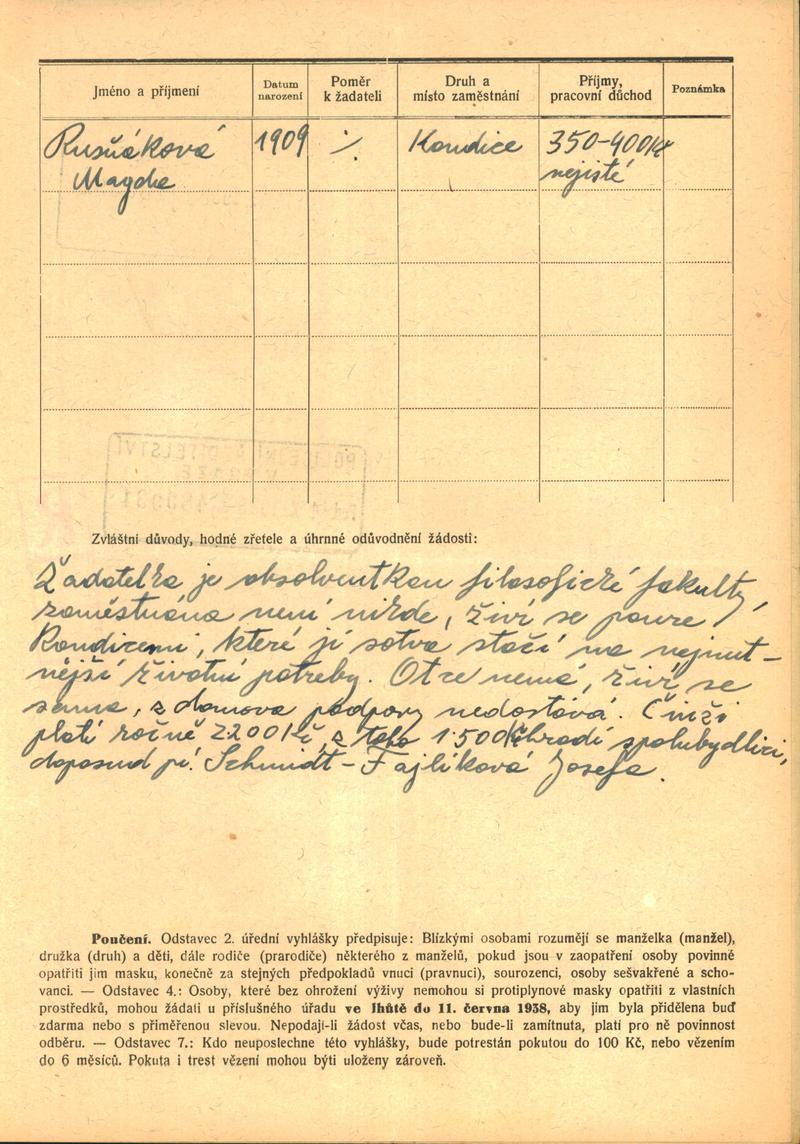 Jméno a příjmení Datum narození Poměr k žadateli Druh a místo zaměstnání Příjmy, pracovní důchod Poznámka
Rusňáková 1909 ·/. Kondice 350-400 Kč
Magda nejisté
Zvláštní důvody, hodné zřetele a úhrnné odůvodnění žádosti:
Žadatelka je absolventkou filosofické fakulty,
zaměstnána není nikde, živí se pouze
kondicemi, které jí sotva stačí na nejnut-
nější životní potřeby. Otce nemá, živí se
sama, z domova podpory nedostává. Činži
platí ročně 2200 Kč, z toho 1500 Kč hradí spolubydlící,
doposud pí. Schmidt-Fajlíková Josefa.
Poučení. Odstavec 2. úřední vyhlášky předpisuje: Blízkými osobami rozumějí se manželka (manžel),
družka (druh) a děti, dále rodiče (prarodiče) některého z manželů, pokud jsou v zaopatření osoby povinné
opatřiti jim masku, konečně za stejných předpokladů vnuci (pravnuci), sourozenci, osoby sešvakřené a scho-
vanci. — Odstavec 4.: Osoby, které bez ohrožení výživy nemohou si protiplynové masky opatřiti z vlastních
prostředků, mohou žádati u příslušného úřadu ve lhůtě do 11. června 1938, aby jim byla přidělena buď
zdarma nebo s přiměřenou slevou. Nepodají-li žádost včas, nebo bude-li zamítnuta, platí pro ně povinnost
odběru. — Odstavec 7.: Kdo neuposlechne této vyhlášky, bude potrestán pokutou do 100 Kč, nebo vězením
do 6 měsíců. Pokuta i trest vězení mohou býti uloženy zároveň.